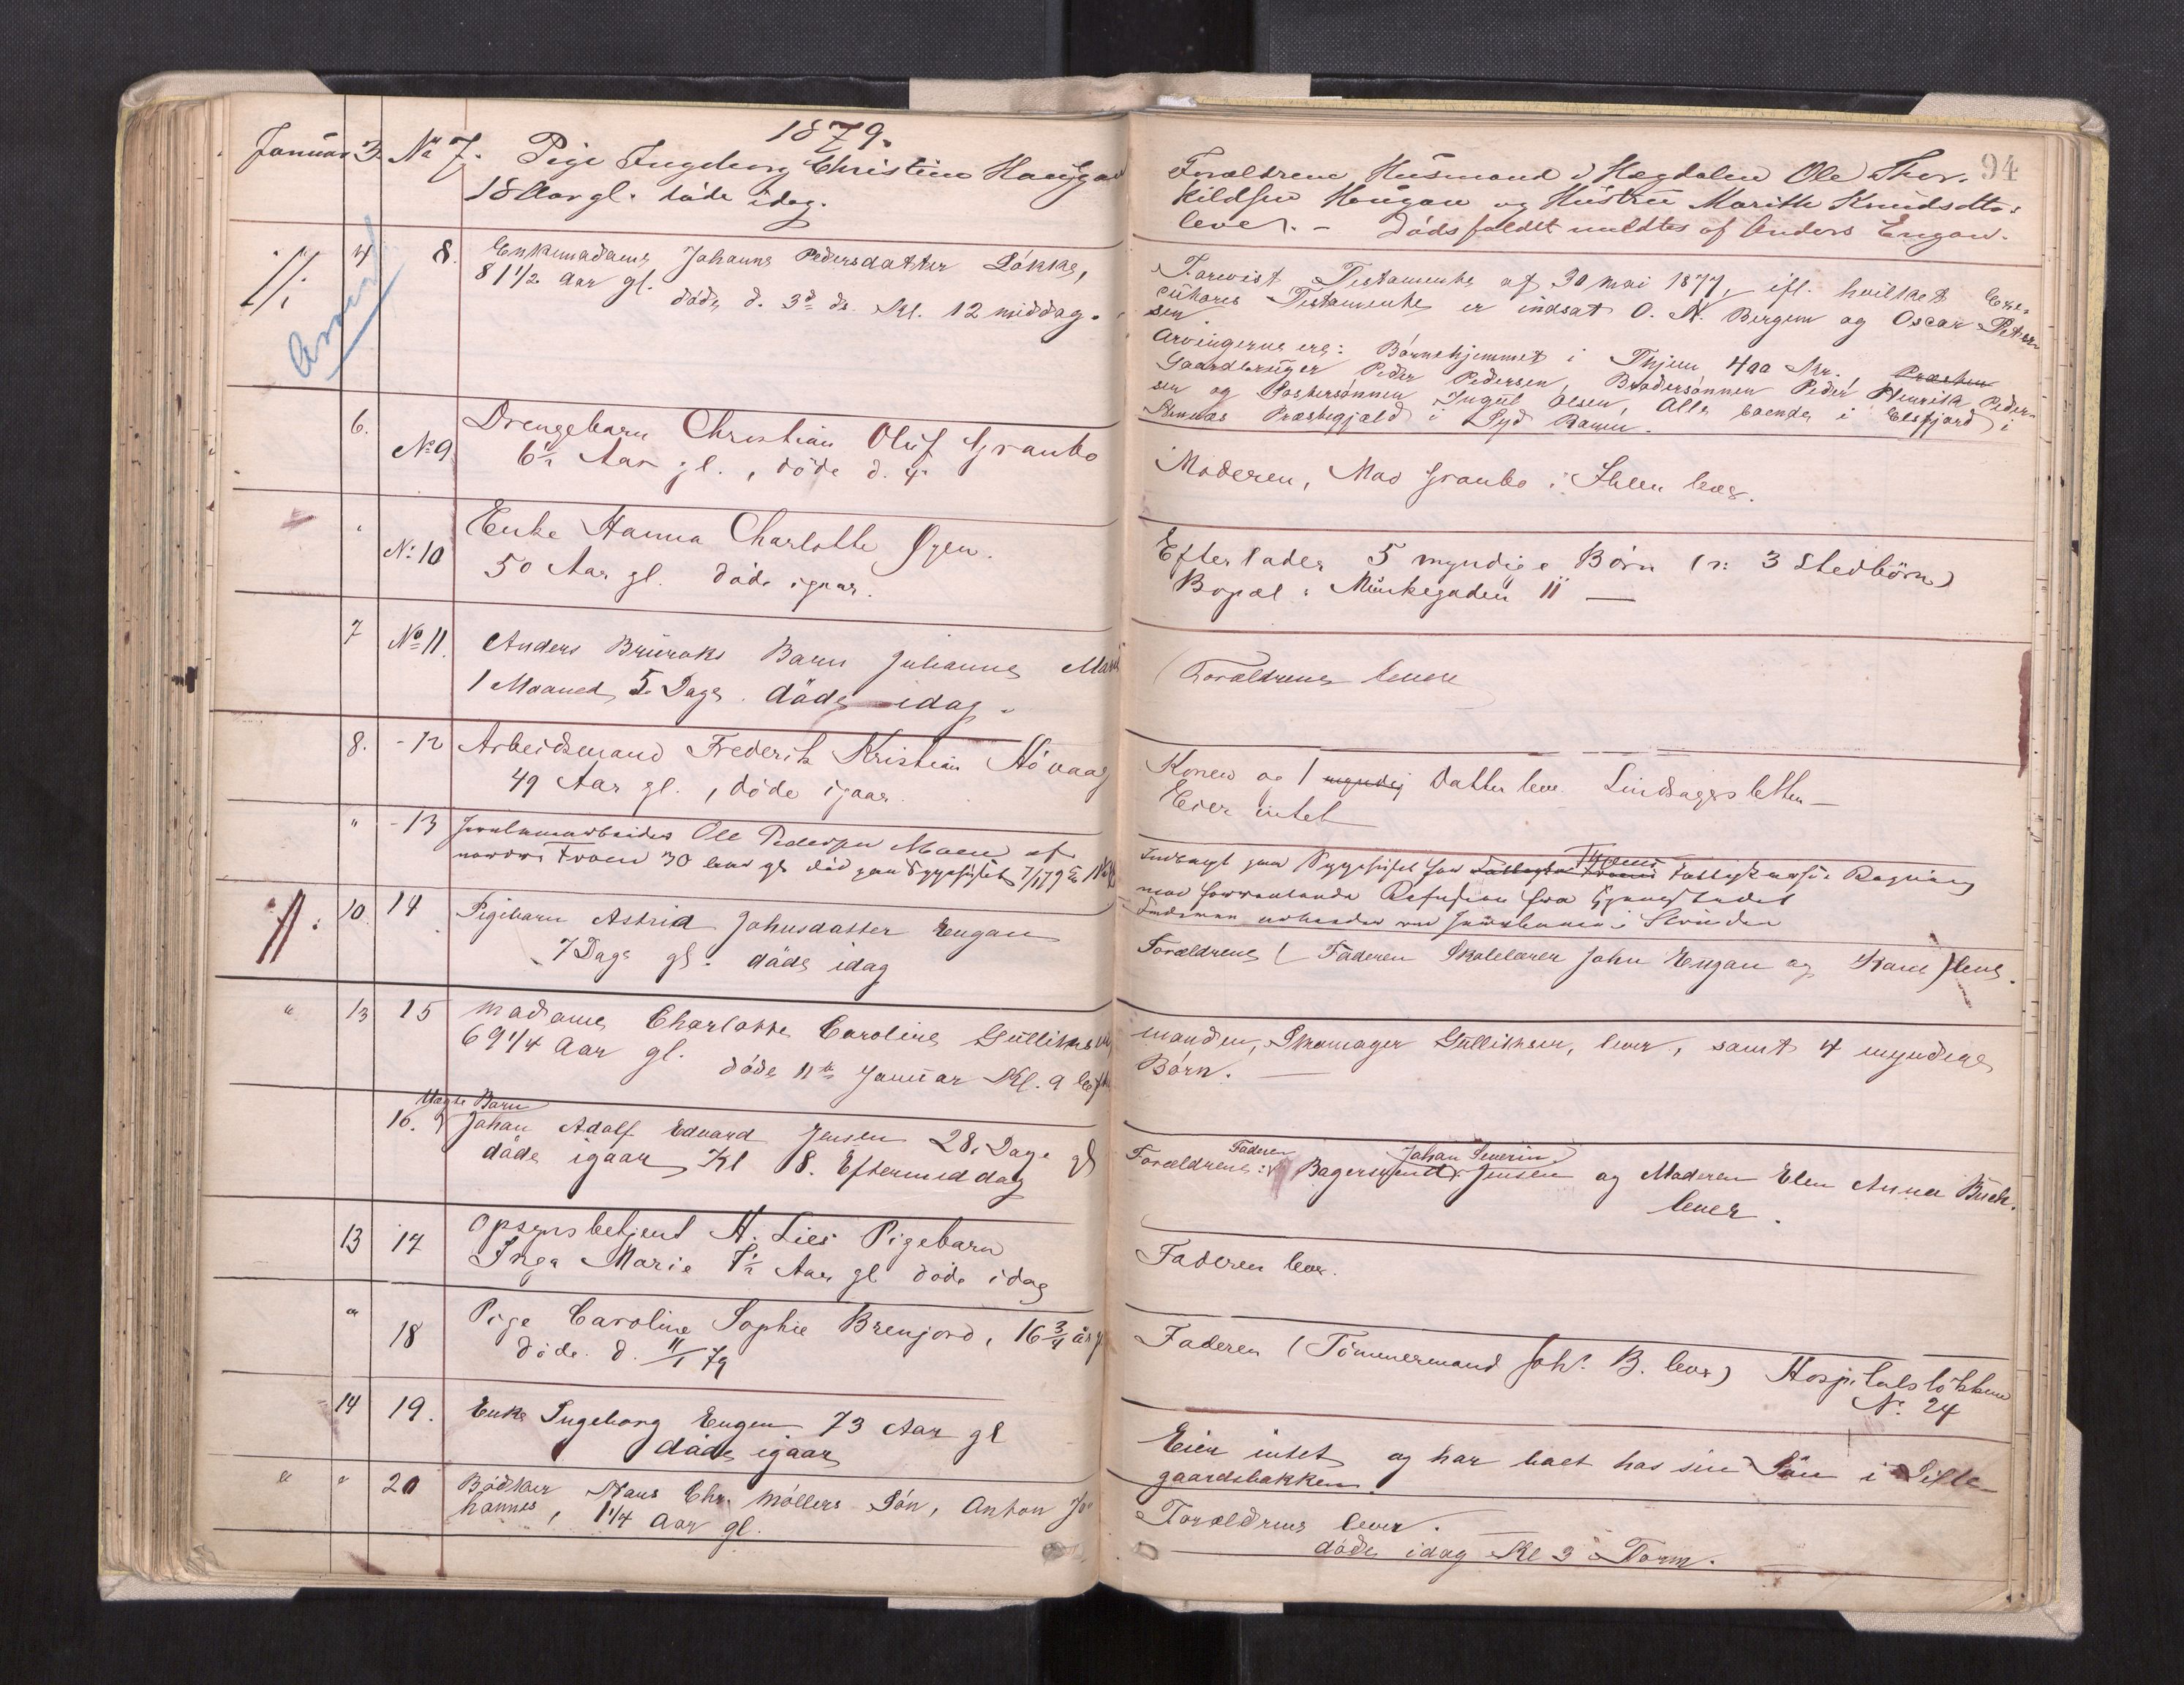 1879.
94
Januar 3. No 7. Pige Ingeborg Christine Haugan
18 Aar gl. døde idag.
Forældrene Husmand i Hegdalen Ole Thor-
kildsen Haugan og Hustru Marith Knudsdtr.
lever. - Dødsfaldet meldtes af Anders Engan.
4 8. Enkemadame Johanna Pedersdatter Løkke,
81 1/2 Aar gl.
døde d. 3d ds. Kl. 12 middag.
Forevist Testamente af 30 mai 1877, ifl. hvilket Exe-
cutores Testamente er indsat O. N. Bergem og Oscar Peter-
sen
Arvingerne ere: Børnehjemmet i Thjem 400 Kr.,
Gaardbruger Peder Pedersen, Brodersønnen Peder Henrik Peder-
sen og Søstersønnen Ingul Olsen, Alle boende i Elsfjord i
Præstegjæld i Syd Ranen.
6. No 9 Drengebarn Christian Oluf Granbo
6 1/2 Aar gl., døde d. 4
Moderen, Mad Granbo i Ihlen lever.
" No 10 Enke Hanna Charlotte Øyen.
50 Aar gl. døde igaar.
Efterlader 5 myndige Børn (ɔ: 3 Stedbørn)
Bopæl: Munkegaden 11 —
7 No 11. Anders Bruraks Barn Julianne Marie
1 Maaned, 5. Dage. døde idag.
Forældrene levere
8. - 12 Arbeidsmand Frederik Kristian Høvaag
49 Aar gl., døde igaar.
Konen og 1 myndig Datter lever Lindsagersletten —
Eier intet
" - 13 Jernbanearbeider Ole Pedersen Moen af
30 Aar gl død paa Sygehuset 7/1 79
Indbragt paa Sygehuset for Fattigkasses Regning
mod forventende Refusion fra
arbeidet ved Jernbanen i Strinden
10. 14 Pigebarn Astrid Johnsdatter Engan
7 Dage gl. døde idag
Forældrene (Faderen Skolelærer John Engan og Kone) leve.
" 13 15 Madame Charlotte Caroline Gulliksen
69 1/4 Aar gl.
døde 11te Januar Kl. 9 Eft
manden, Skomager Gulliksen, lever, samt 4 myndige
Børn. —
Barn
16. Johan Adolf Edvard Jensen 28. Dage gl
døde igaar, Kl 8. Eftermiddag
Faderen Johan Severin
Forældrene: Bagersvend Jensen og Moderen Elen Anna Buck.
lever.
13 17 Opsynsbetjent H. Lies Pigebarn
Inga Marie 1/2 Aar gl døde idag
Faderen lever.
" 18 Pige Caroline Sophie Brenjord, 16 3/4 år g
døde d. 11/1 79
Faderen (Tømmermand Joh. B. lever) Hospitalsløkken
No. 24
14 19. Enke Ingeborg Engen 73 Aar gl
døde igaar
Eier intet og har boet hos sin Søn i
gaardsbakken.
" " 20 Bødker Hans Chr. Møllers Søn, Anton Jo-
hannes, 1 1/4 Aar gl.
Forældrene lever.
døde idag Kl 3 Form.